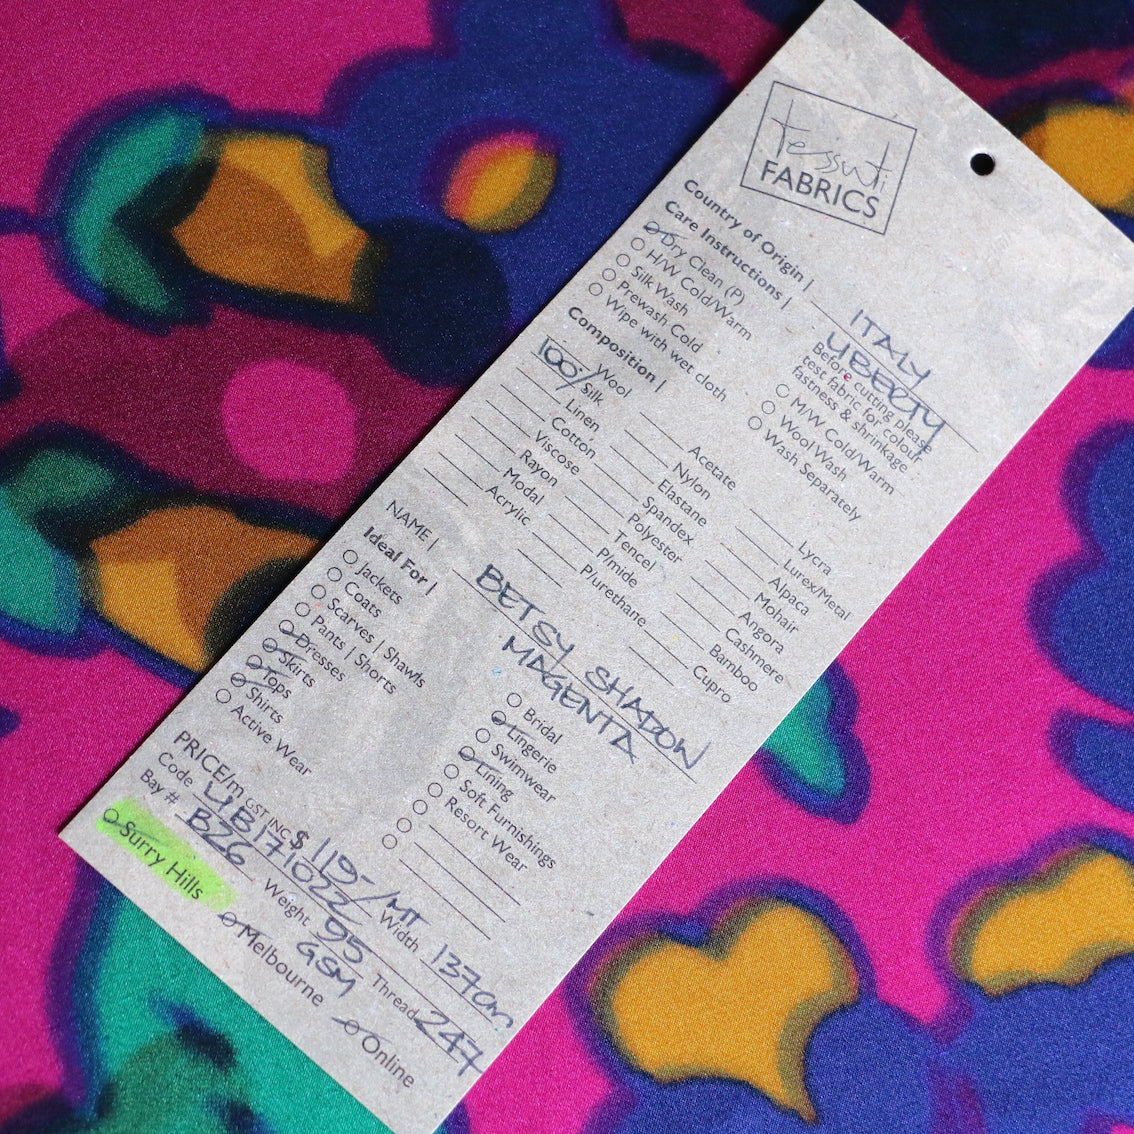 tessuti
FABRICS
Country of Origin | ITALY
Care Instructions | LIBERTY
Dry Clean (P)
H/W Cold/Warm
Silk Wash
Prewash Cold
Wipe with wet cloth
Before cutting please
test fabric for colour
fastness & shrinkage
M/W Cold/Warm
Wool Wash
Wash Separately
Composition |
Wool
100% Silk
Linen
Cotton
Viscose
Rayon
Modal
Acrylic
Acetate
Nylon
Elastane
Spandex
Polyester
Tencel
P/mide
P/urethane
Lycra
Lurex/Metal
Alpaca
Mohair
Angora
Cashmere
Bamboo
Cupro
NAME | BETSY SHADOW
MAGENTA
Ideal For |
Jackets
Coats
Scarves | Shawls
Pants | Shorts
Dresses
Skirts
Tops
Shirts
Active Wear
Bridal
Lingerie
Swimwear
Lining
Soft Furnishings
Resort Wear
PRICE/m GST INC $ 119-/MT
Code UB171022 Width 137cm
Bay # B26 Weight 95 GSM Thread 247
Surry Hills
Melbourne
Online